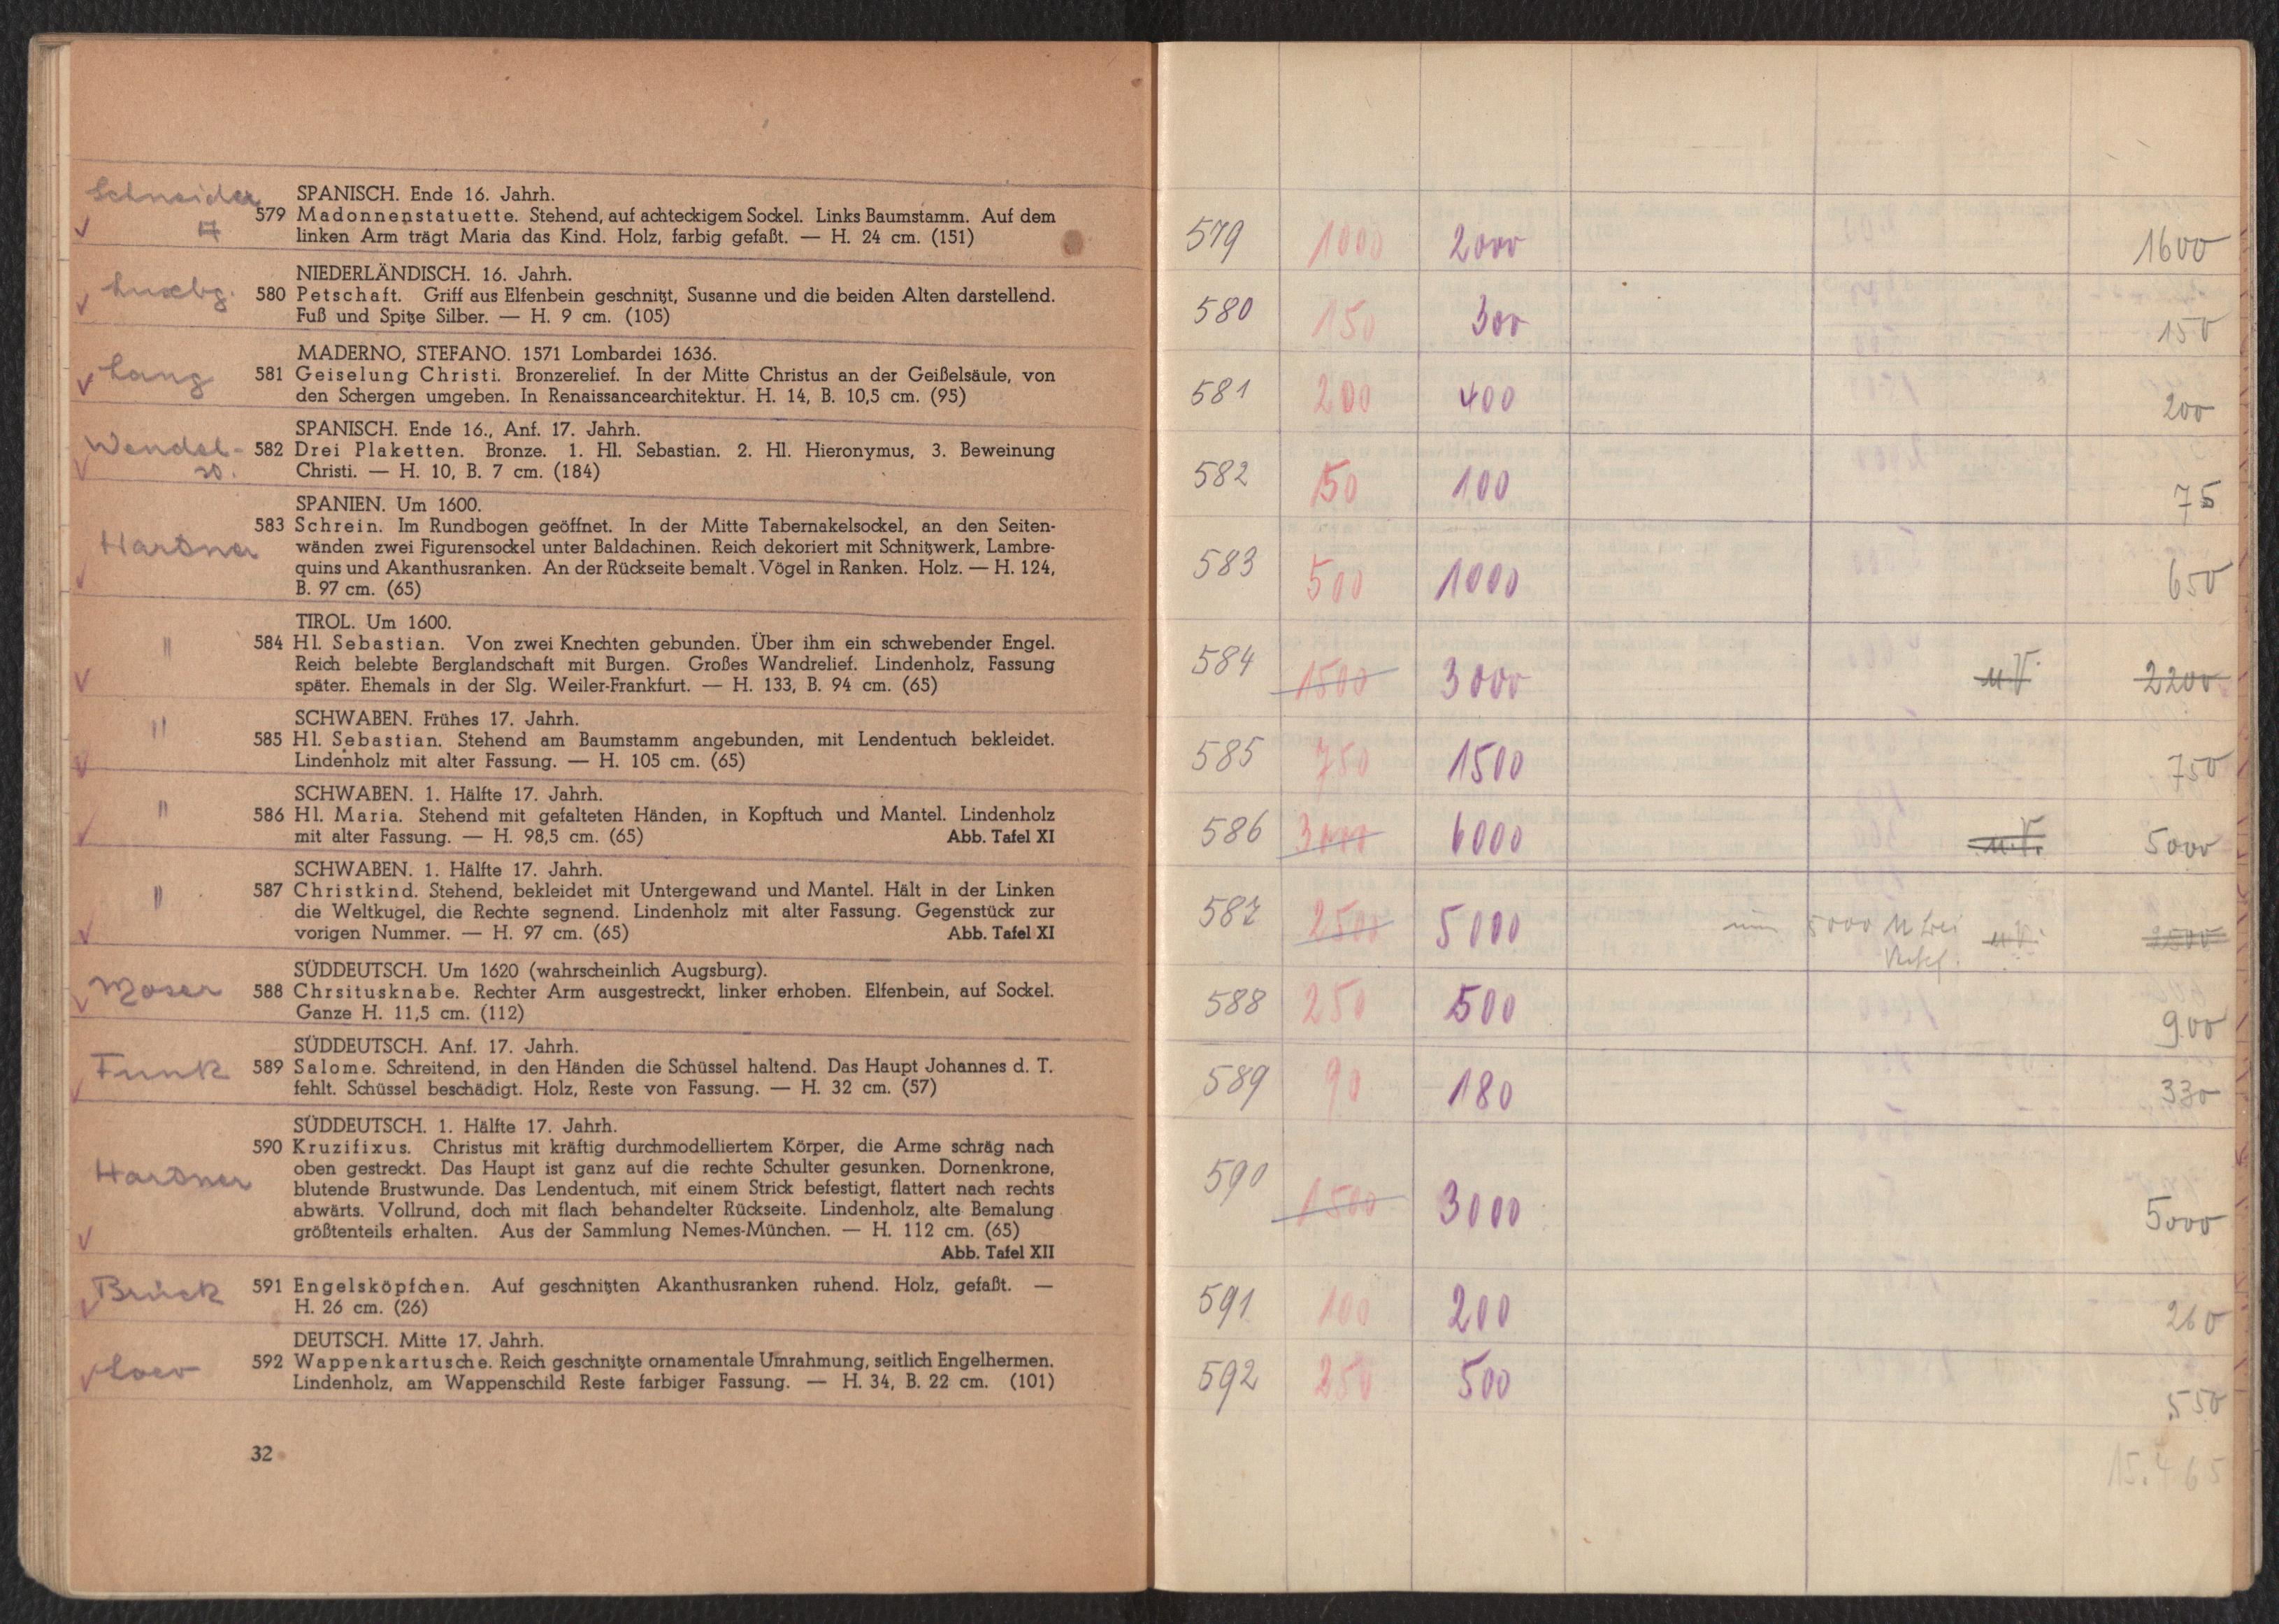 Schneider
SPANISCH. Ende 16. Jahrh.
579 Madonnenstatuette. Stehend, auf achteckigem Sockel. Links Baumstamm. Auf dem
linken Arm trägt Maria das Kind. Holz, farbig gefaßt. — H. 24 cm. (151)
Luxbg.
NIEDERLÄNDISCH. 16. Jahrh.
580 Petschaft. Griff aus Elfenbein geschnitzt, Susanne und die beiden Alten darstellend.
Fuß und Spitze Silber. — H. 9 cm. (105)
Lang
MADERNO, STEFANO. 1571 Lombardei 1636.
581 Geiselung Christi. Bronzerelief. In der Mitte Christus an der Geißelsäule, von
den Schergen umgeben. In Renaissancearchitektur. H. 14, B. 10,5 cm. (95)
Wendel-
SPANISCH. Ende 16., Anf. 17. Jahrh.
582 Drei Plaketten. Bronze. 1. Hl. Sebastian. 2. Hl. Hieronymus, 3. Beweinung
Christi. — H. 10, B. 7 cm. (184)
SPANIEN. Um 1600.
583 Schrein. Im Rundbogen geöffnet. In der Mitte Tabernakelsockel, an den Seiten-
Hardner
wänden zwei Figurensockel unter Baldachinen. Reich dekoriert mit Schnitzwerk, Lambre-
quins und Akanthusranken. An der Rückseite bemalt. Vögel in Ranken. Holz. — H. 124,
B. 97 cm. (65)
TIROL. Um 1600.
" 584 Hl. Sebastian. Von zwei Knechten gebunden. Über ihm ein schwebender Engel.
Reich belebte Berglandschaft mit Burgen. Großes Wandrelief. Lindenholz, Fassung
später. Ehemals in der Slg. Weiler-Frankfurt. — H. 133, B. 94 cm. (65)
SCHWABEN. Frühes 17. Jahrh.
" 585 Hl. Sebastian. Stehend am Baumstamm angebunden, mit Lendentuch bekleidet.
Lindenholz mit alter Fassung. — H. 105 cm. (65)
SCHWABEN. 1. Hälfte 17. Jahrh.
" 586 Hl. Maria. Stehend mit gefalteten Händen, in Kopftuch und Mantel. Lindenholz
mit alter Fassung. — H. 98,5 cm. (65) Abb. Tafel XI
SCHWABEN. 1. Hälfte 17. Jahrh.
" 587 Christkind. Stehend, bekleidet mit Untergewand und Mantel. Hält in der Linken
die Weltkugel, die Rechte segnend. Lindenholz mit alter Fassung. Gegenstück zur
vorigen Nummer. — H. 97 cm. (65) Abb. Tafel XI
SÜDDEUTSCH. Um 1620 (wahrscheinlich Augsburg).
Moser 588 Chrsitusknabe. Rechter Arm ausgestreckt, linker erhoben. Elfenbein, auf Sockel.
Ganze H. 11,5 cm. (112)
SÜDDEUTSCH. Anf. 17. Jahrh.
Funk 589 Salome. Schreitend, in den Händen die Schüssel haltend. Das Haupt Johannes d. T.
fehlt. Schüssel beschädigt. Holz, Reste von Fassung. — H. 32 cm. (57)
SÜDDEUTSCH. 1. Hälfte 17. Jahrh.
590 Kruzifixus. Christus mit kräftig durchmodelliertem Körper, die Arme schräg nach
Hardner
oben gestreckt. Das Haupt ist ganz auf die rechte Schulter gesunken. Dornenkrone,
blutende Brustwunde. Das Lendentuch, mit einem Strick befestigt, flattert nach rechts
abwärts. Vollrund, doch mit flach behandelter Rückseite. Lindenholz, alte Bemalung
größtenteils erhalten. Aus der Sammlung Nemes-München. — H. 112 cm. (65)
Abb. Tafel XII
Brück 591 Engelsköpfchen. Auf geschnitzten Akanthusranken ruhend. Holz, gefaßt. —
H. 26 cm. (26)
DEUTSCH. Mitte 17. Jahrh.
Loev 592 Wappenkartusche. Reich geschnitzte ornamentale Umrahmung, seitlich Engelhermen.
Lindenholz, am Wappenschild Reste farbiger Fassung. — H. 34, B. 22 cm. (101)
32
579 1000 2000 1600
580 150 300 150
581 200 400 200
582 50 100 75
583 500 1000 650
584 1500 3000 u.V. 2200
585 750 1500 750
586 3000 6000 u.V. 5000
587 2500 5000 5000 u.V. 2500
588 250 500 900
589 90 180 330
590 1500 3000 5000
591 100 200 260
592 250 500 550
15.465